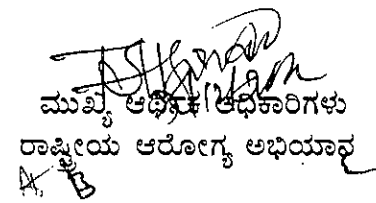 ಮುಖ್ಯ ಆರ್ಥಿಕ ಅಧಿಕಾರಿಗಳು
ರಾಷ್ಟ್ರೀಯ ಆರೋಗ್ಯ ಅಭಿಯಾನ